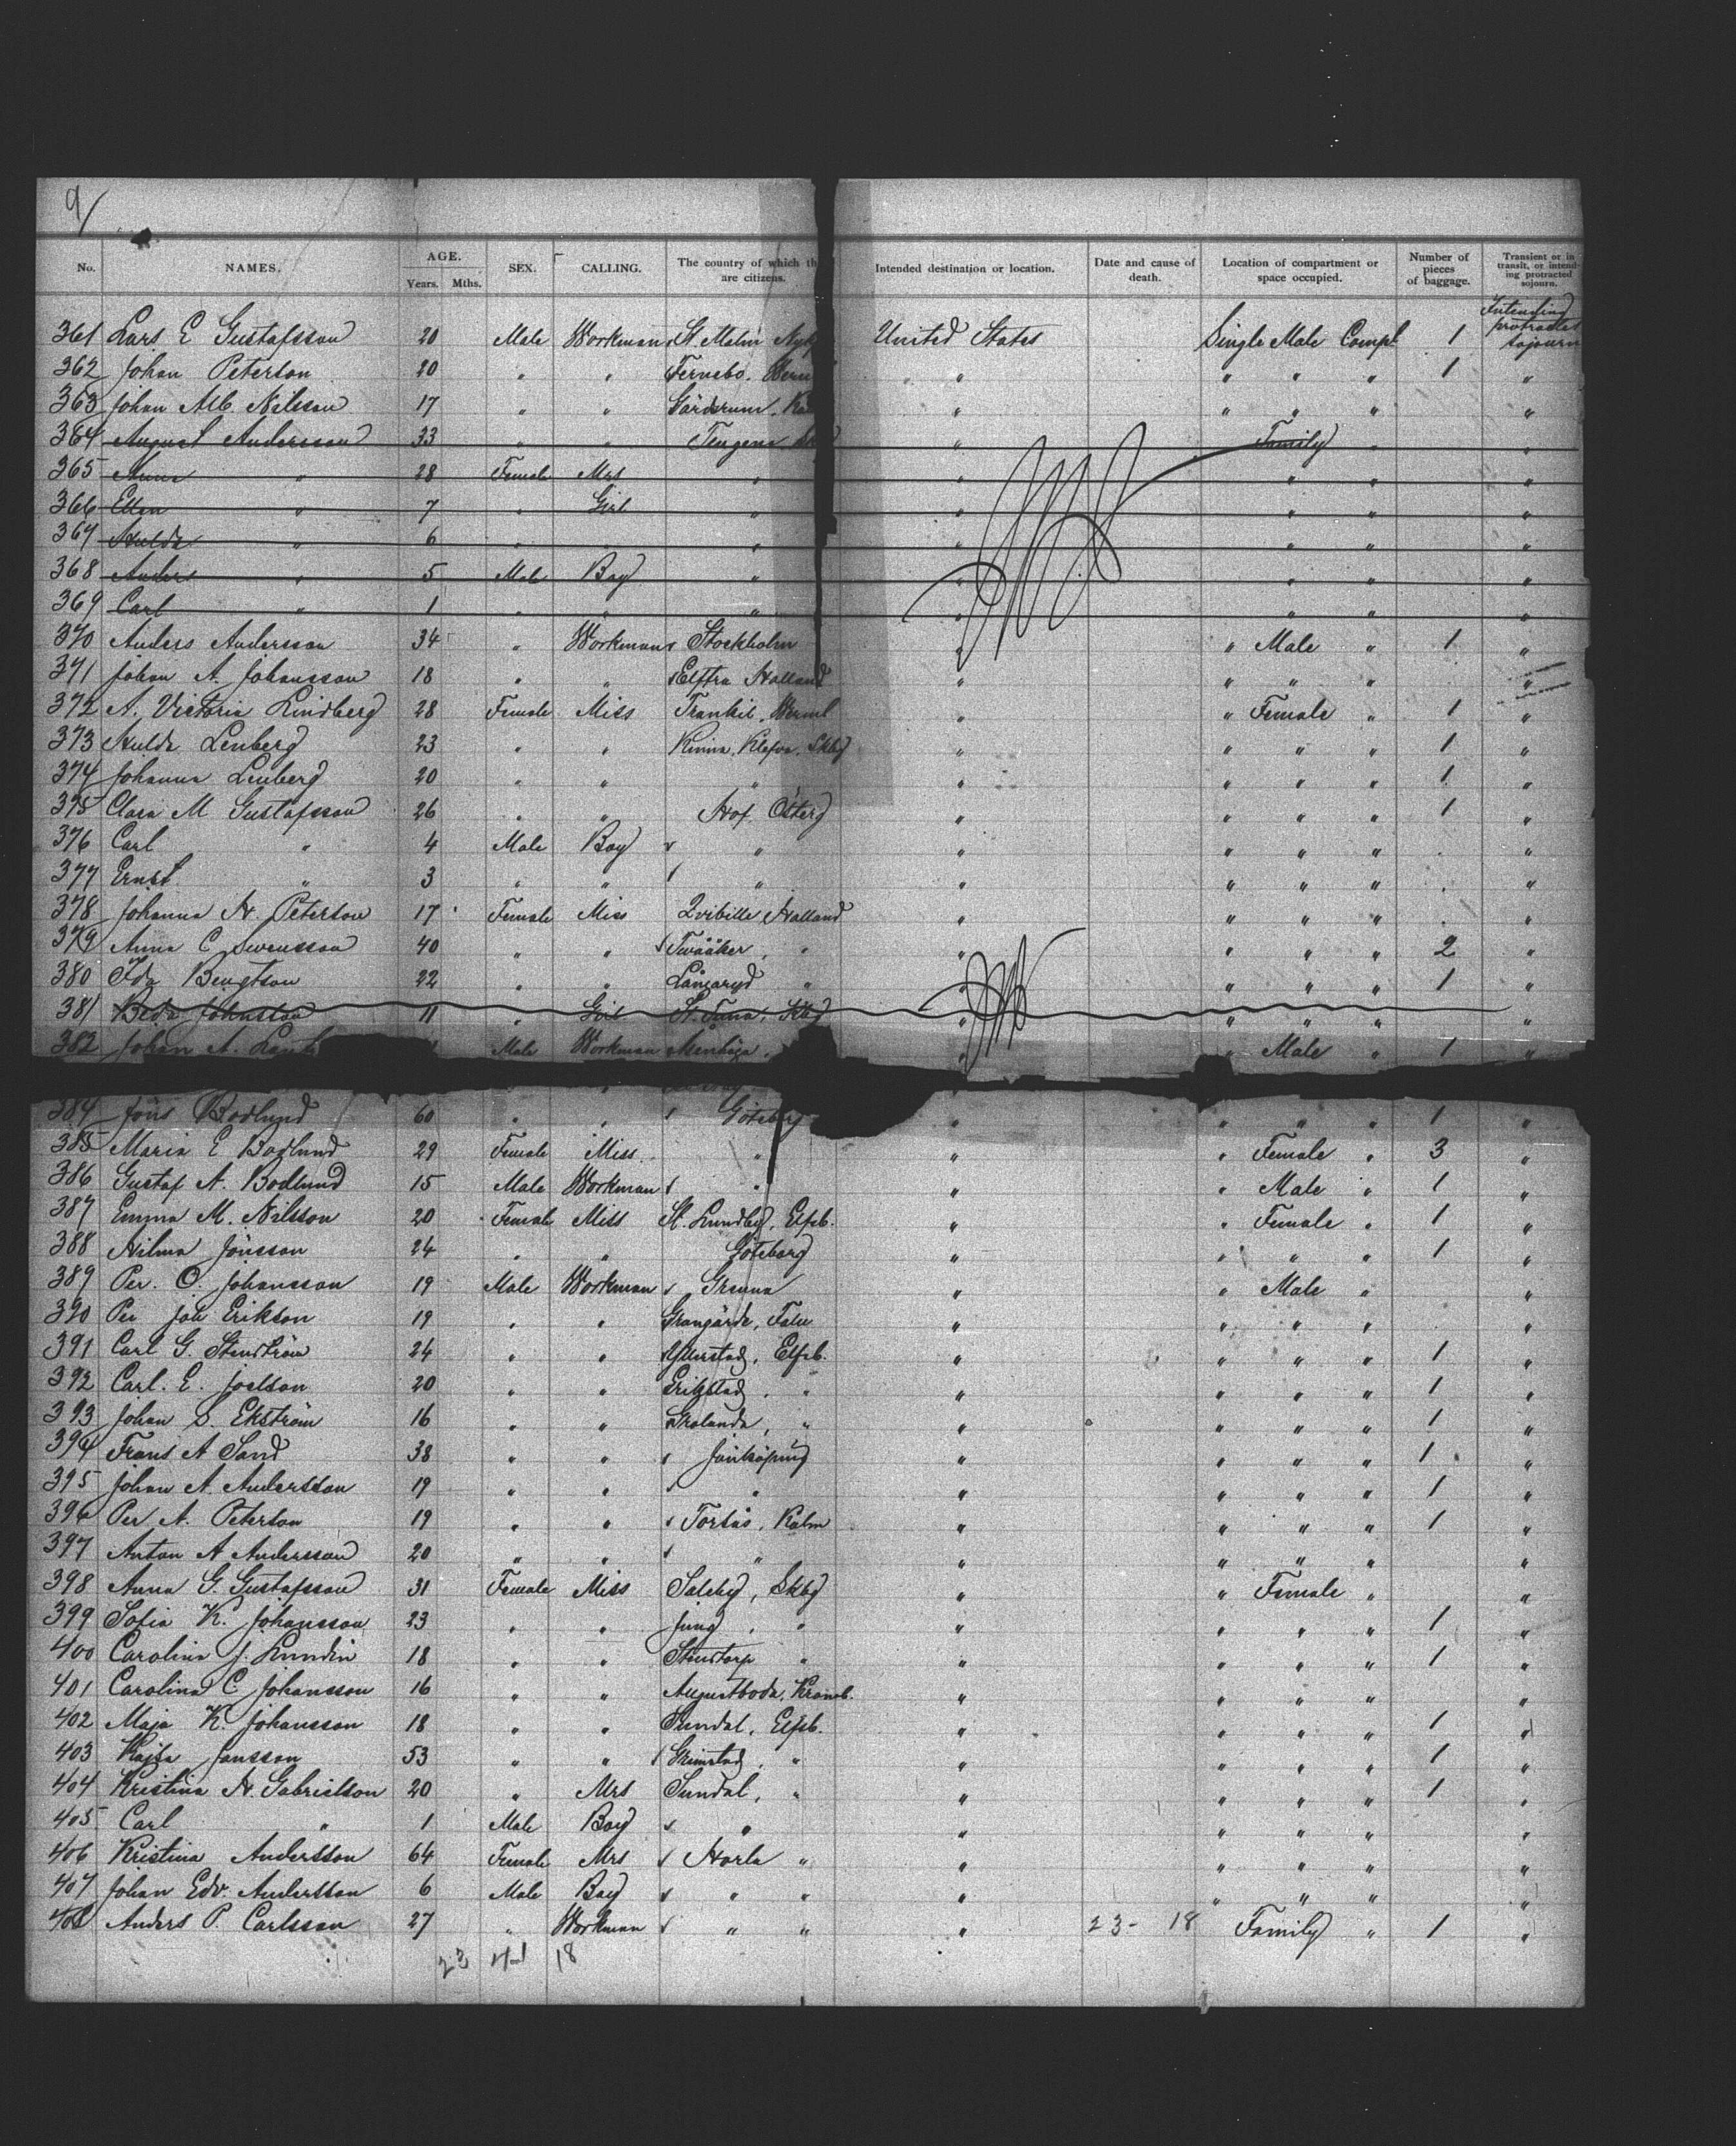 9/
No. NAMES. AGE. Years. Mths. SEX. CALLING. The country of which th are citizens. Intended destination or location. Date and cause of death. Location of compartment or space occupied. Number of pieces of baggage. Transient or in transit, or intend- ing protracted sojourn.
361 Lars E Gustafsson 20 Male Workman St. Malm United States Single Male Compt 1 Intending protracted sojourn
362 Johan Peterson 20 " " Fernebo. " " " " 1 "
363 Johan Alb. Nilsson 17 " " Gärdserum. " " " " "
364 August Andersson 33 " " Tengene " Family " "
365 Anna " 28 Female Mrs " " " " "
366 Ellen " 7 " Girl " " " " "
367 Hulda " 6 " " " " " " "
368 Anders " 5 Male Boy " " " " "
369 Carl " 1 " " " " " " "
370 Anders Andersson 34 " Workman Stockholm " " Male " 1 "
371 Johan A. Johansson 18 " " Elftra Halland " " " " "
372 A. Victoria Lindberg 28 Female Miss Trankil, Werml " " Female " 1 "
373 Hulda Lenberg 23 " " Kinna, Klefva. Skbg " " " " 1 "
374 Johanna Lenberg 20 " " " " " " " 1 "
375 Clara M Gustafsson 26 " " Hof. Österg " " " " 1 "
376 Carl " 4 Male Boy " " " " " "
377 Ernst " 3 " " " " " " " "
378 Johanna H. Peterson 17 Female Miss Qvibille Halland " " " " "
379 Anna C Swensson 40 " " Twååker, " " " " " 2 "
380 Ida Bengtson 22 " " Långaryd " " " " " 1 "
381 Beda Johnston 11 " Girl St. Tuna, Skbg " " " " "
382 Johan A. Male Workman " " Male " 1 "
384 Jöns Bodlund 60 " " Göteborg " " " " 1 "
385 Maria E Bodlund 29 Female Miss " " " Female " 3 "
386 Gustaf A. Bodlund 15 Male Workman " " " Male " 1 "
387 Emma M. Nilsson 20 Female Miss St. Lundby, Elfsb. " " Female " 1 "
388 Hilma Jönsson 24 " " Göteborg " " " " 1 "
389 Per. O. Johansson 19 Male Workman Grenna " " Male " "
390 Per Joh Erikson 19 " " Grangärde, Falu " " " " "
391 Carl G. Stenström 24 " " Ullerstad, Elfsb. " " " " 1 "
392 Carl. E. Joelson 20 " " Erikstad, " " " " " 1 "
393 Johan S. Ekström 16 " " Grolanda, " " " " " 1 "
394 Frans A Sand 38 " " Jönköping " " " " 1 "
395 Johan A. Andersson 19 " " " " " " " 1 "
396 Per A. Peterson 19 " " Torsås, Kalm " " " " 1 "
397 Anton A Andersson 20 " " " " " " " "
398 Anna G. Gustafsson 31 Female Miss Saleby, Skbg " " Female " "
399 Sofia K. Johansson 23 " " Jung, " " " " " 1 "
400 Carolina J. Lundin 18 " " Stenstorp " " " " " 1 "
401 Carolina C Johansson 16 " " Augustboda, Kronob. " " " " "
402 Maja K. Johansson 18 " " Sundal, Elfsb. " " " " 1 "
403 Kajsa Jansson 53 " " Grinstad, " " " " " 1 "
404 Kristina H. Gabrielson 20 " Mrs Sundal, " " " " " 1 "
405 Carl " 1 Male Boy " " " " " "
406 Kristina Andersson 64 Female Mrs Horla " " " " " "
407 Johan Edv. Andersson 6 Male Boy " " " " " " "
408 Anders P. Carlsson 27 " Workman " " " 23- 18 Family " 1 "
23 41 18